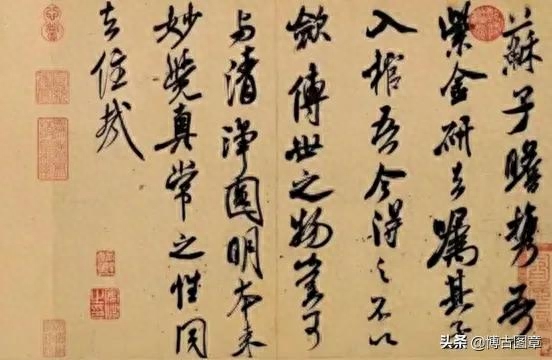 蘇子瞻攜吾
紫金研去嘱其子
入棺吾今得之不以
斂傳世之物豈可
与清淨圓明本来
妙覺真常之性同
去住哉
头条 @博古图章